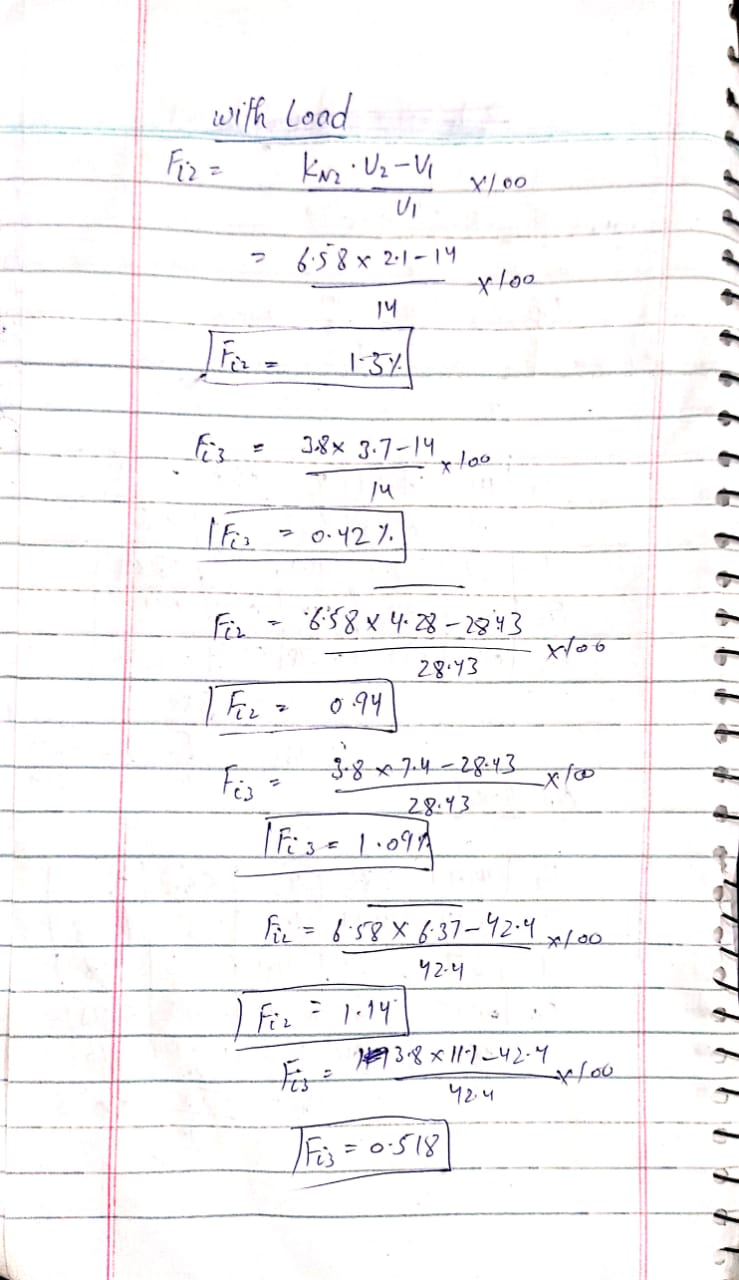 with Load
Fi2 = KN2 · U2 – U1 / U1 x100
= 6.58 x 2.1 – 14 / 14 x100
Fi2 = 1.3%
Fi3 = 3.8x 3.7–14 / 14 x100
Fi3 = 0.42 %
Fi2 = 6.58 x 4.28 – 28.43 / 28.43 x100
Fi2 = 0.94
Fi3 = 3.8 x 7.4 – 28.43 / 28.43 x100
Fi3 = 1.09%
Fi2 = 6.58 x 6.37 – 42.4 / 42.4 x100
Fi2 = 1.14
Fi3 = 3.8 x 11.1 – 42.4 / 42.4 x100
Fi3 = 0.518